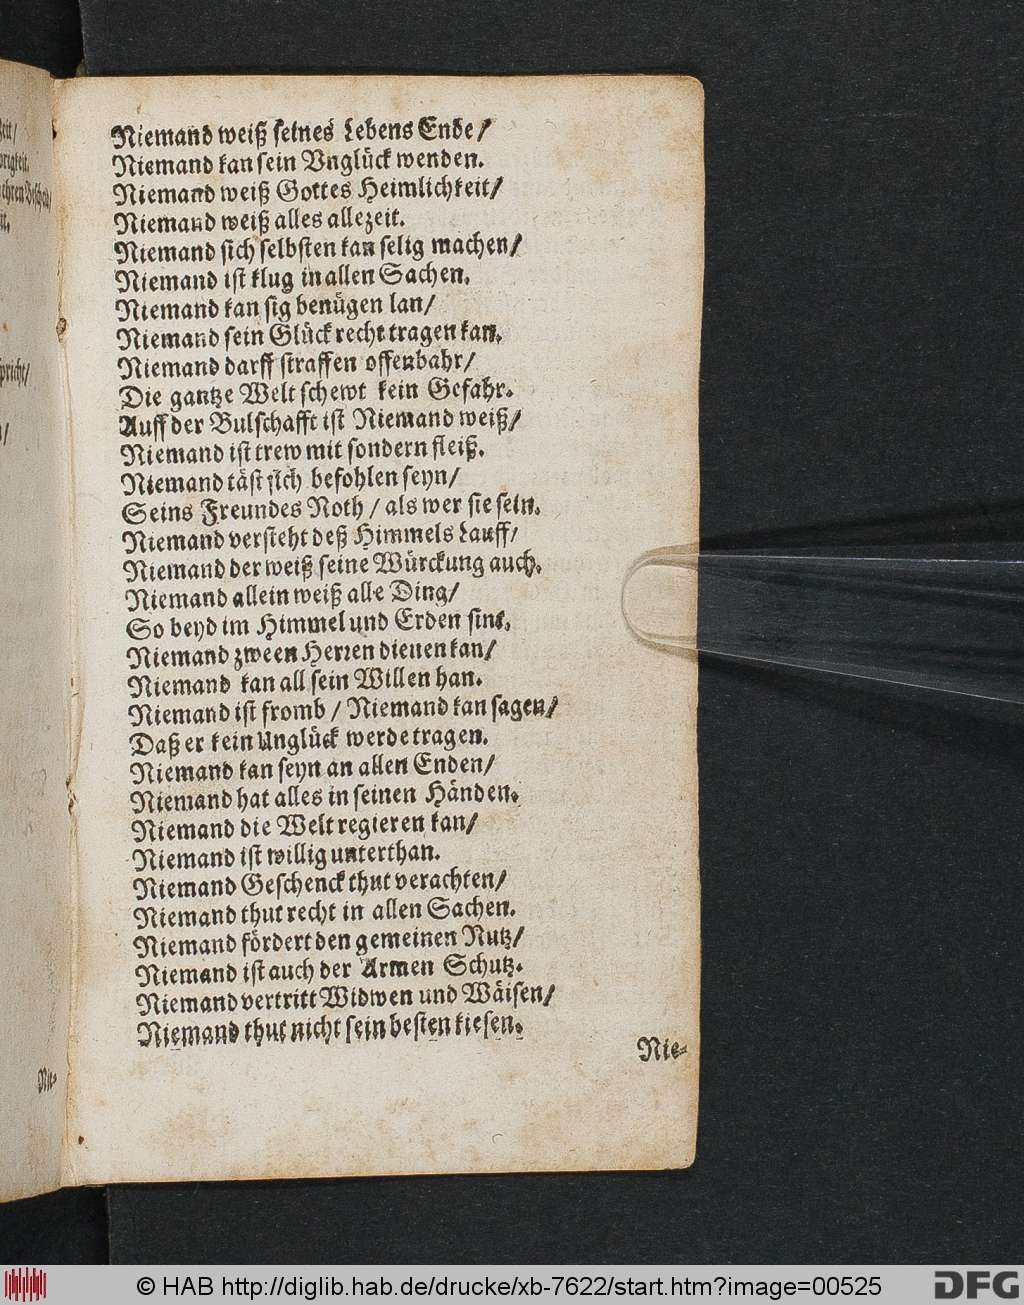 Niemand weiß seines Lebens Ende/
Niemand kan sein Vnglück wenden.
Niemand weiß Gottes Heimlichkeit/
Niemand weiß alles allezeit.
Niemand sich selbsten kan selig machen/
Niemand ist klug in allen Sachen.
Niemand kan sig benügen lan/
Niemand sein Glück recht tragen kan.
Niemand darff straffen offenbahr/
Die gantze Welt schewt kein Gefahr.
Auff der Bulschafft ist Niemand weiß/
Niemand ist trew mit sondern fleiß.
Niemand täst sich befohlen seyn/
Seins Freundes Noth / als wer sie sein.
Niemand versteht deß Himmels Lauff/
Niemand der weiß seine Würckung auch.
Niemand allein weiß alle Ding/
So beyd im Himmel und Erden sint.
Niemand zween Herren dienen kan/
Niemand kan all sein Willen han.
Niemand ist fromb / Niemand kan sagen/
Daß er kein Unglück werde tragen.
Niemand kan seyn an allen Enden/
Niemand hat alles in seinen Händen.
Niemand die Welt regieren kan/
Niemand ist willig unterthan.
Niemand Geschenck thut verachten/
Niemand thut recht in allen Sachen.
Niemand fördert den gemeinen Nutz/
Niemand ist auch der Armen Schutz.
Niemand vertritt Widwen und Wäisen/
Niemand thut nicht sein besten kiesen.
Nie-
© HAB http://diglib.hab.de/drucke/xb-7622/start.htm?image=00525
DFG